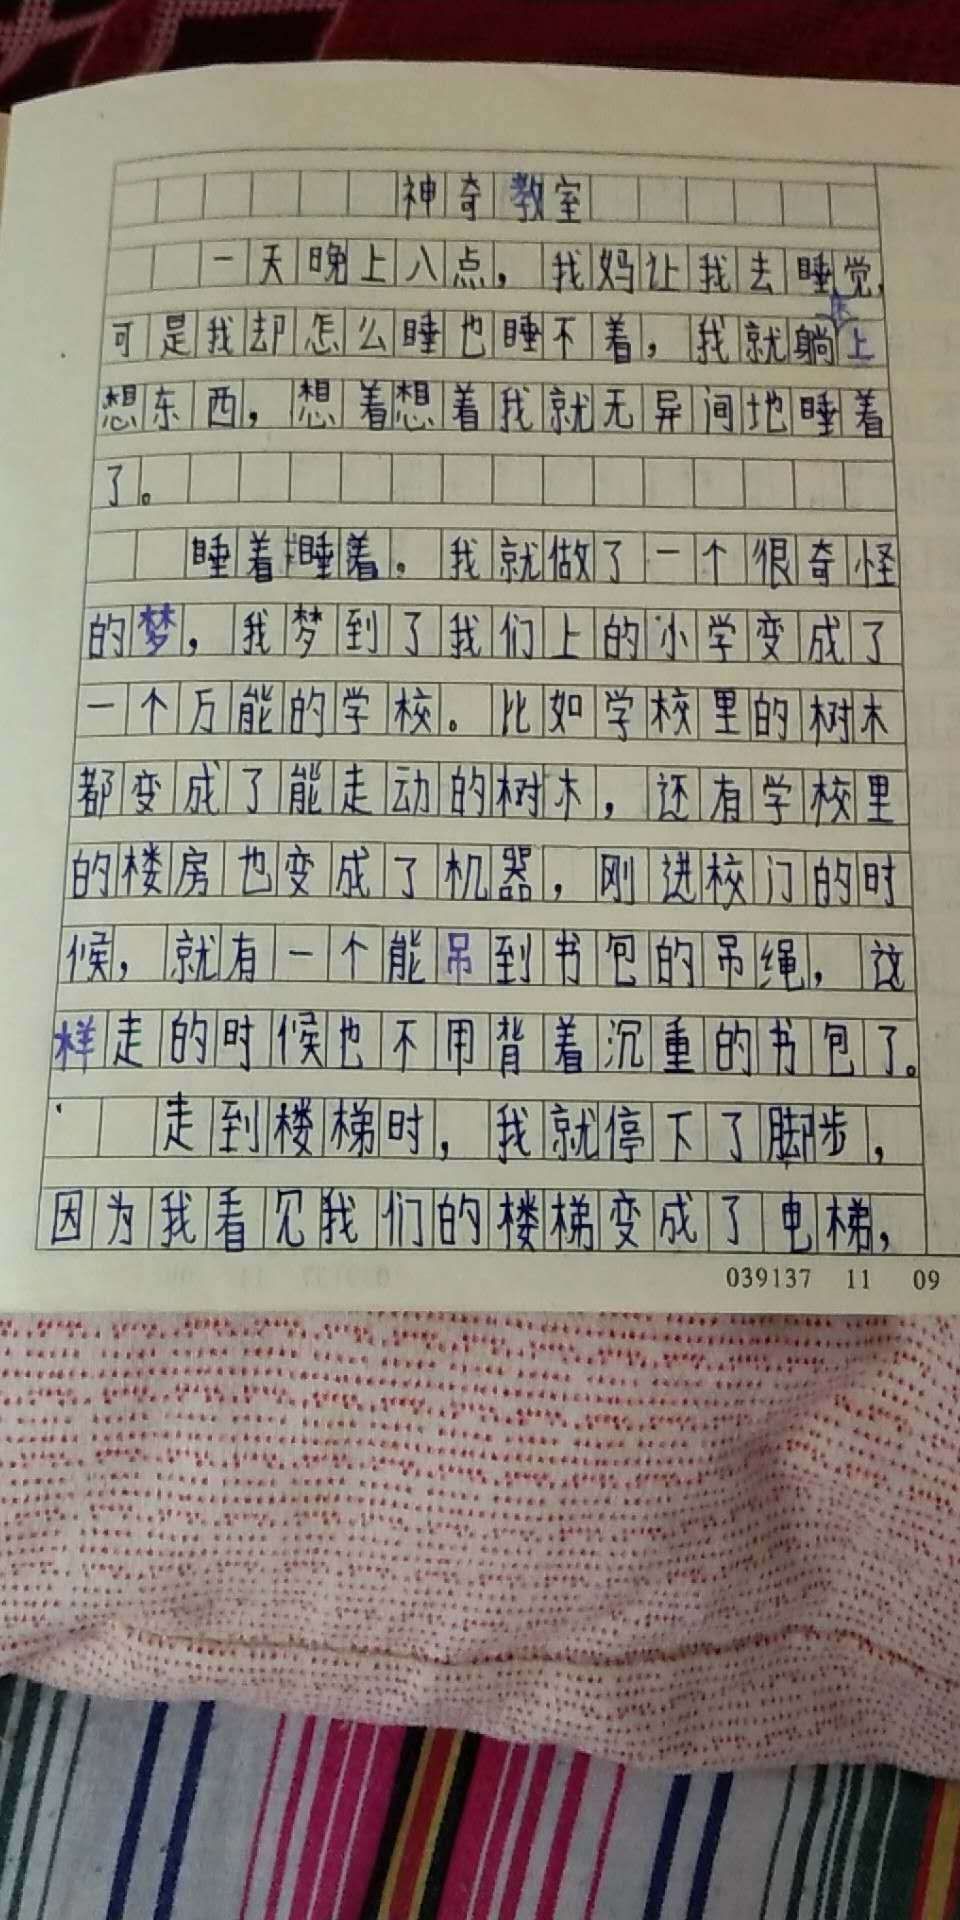 神奇教室
一天晚上八点，我妈让我去睡觉，
可是我却怎么睡也睡不着，我就躺床上
想东西，想着想着我就无异间地睡着
了。
睡着睡着。我就做了一个很奇怪
的梦，我梦到了我们上的小学变成了
一个万能的学校。比如学校里的树木
都变成了能走动的树木，还有学校里
的楼房也变成了机器，刚进校门的时
候，就有一个能吊到书包的吊绳，这
样走的时候也不用背着沉重的书包了。
走到楼梯时，我就停下了脚步，
因为我看见我们的楼梯变成了电梯，
039137 11 09